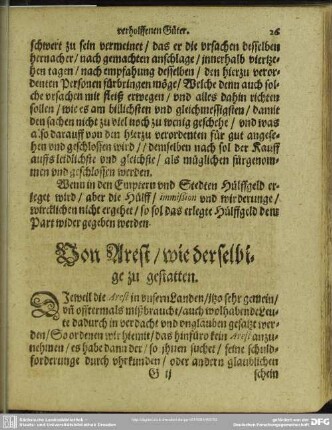 verholffenen Güter. 26
schwert zu sein vermeinet / das er die vrsachen desselben
hernacher / nach gemachten anschlage / innerhalb viertze-
hen tagen / nach empfahung desselben / den hierzu veror-
denten Personen fürbringen möge / Welche denn auch sol-
che vrsachen mit fleiß erwegen / vnd alles dahin richten
sollen / wie es am billichsten vnd gleichmessigsten / damit
den sachen nicht zu viel noch zu wenig geschehe / vnd was
also darauff von den hierzu verordenten für gut angese-
hen vnd geschlossen wird / / demselben nach sol der Kauff
auffs leidlichste vnd gleichste / als müglichen fürgenom-
men vnd geschlossen werden.
Wenn in den Emptern vnd Stedten Hülffgeld er-
leget wird / aber die Hülff / immission vnd wirderunge /
wircklichen nicht ergehet / so sol das erlegte Hülffgeld dem
Part wider gegeben werden.
Von Arest / wie derselbi-
ge zu gestatten.
DJeweil die Arest in vnsern Landen / itzo sehr gemein /
vñ offtermals mißbraucht / auch wolhabende Leu-
te dadurch in verdacht vnd vnglauben gesatzt wer-
den / So ordenen wir hiemit / das hinfüro kein Arest anzu-
nehmen / es habe dann der / so jhnen suchet / seine schuld-
forderunge durch vhrkunden / oder andern glaublichen
G ij schein